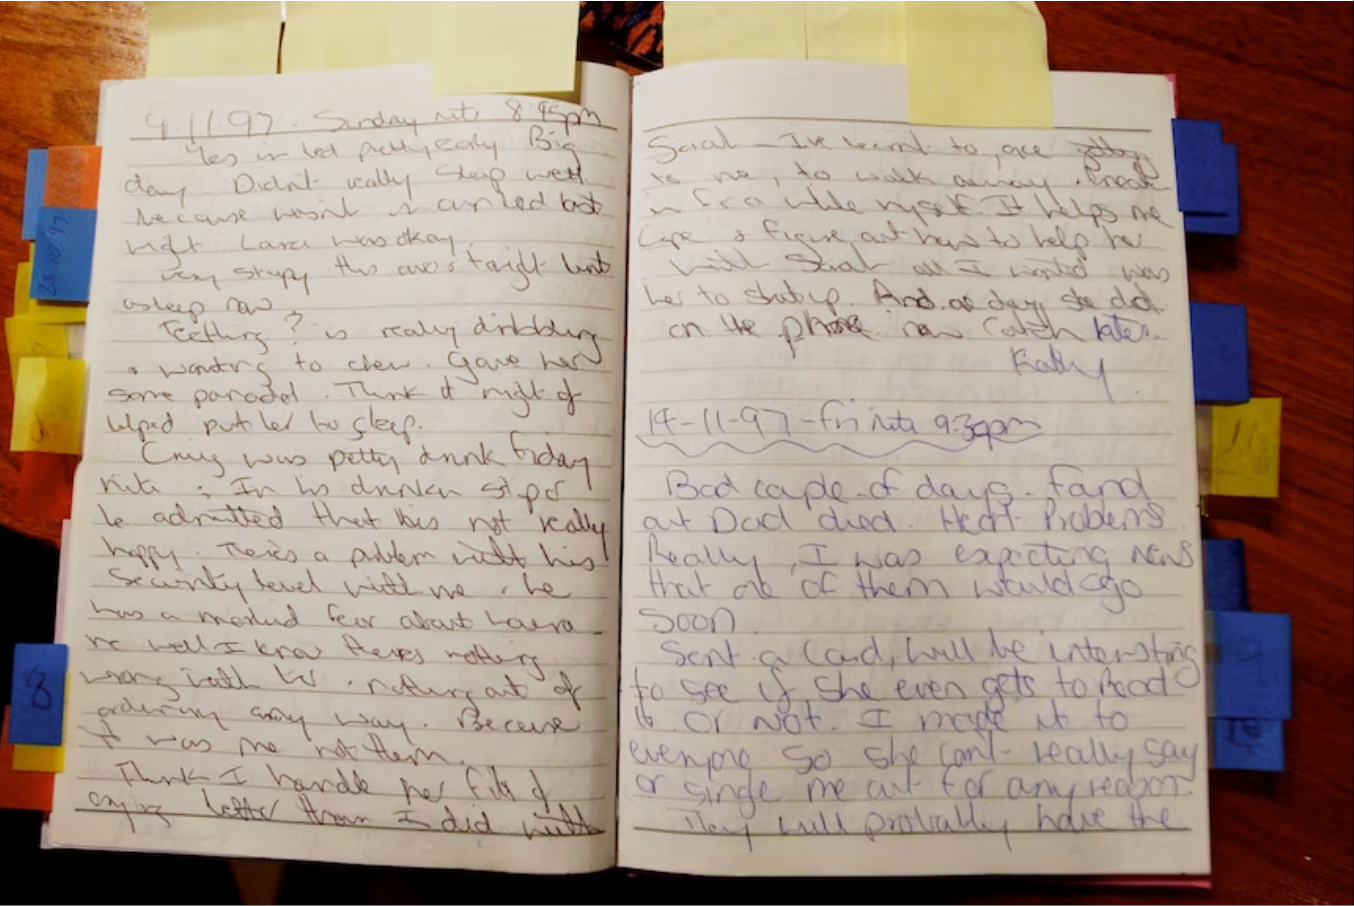 9.11.97. Sunday nite 8.45pm
Yes in bed pretty early. Big
day. Didn't really sleep well
because wasn't cuddled last
night Laura was okay.
very sleepy this avo & tonight
asleep now
Teething? is really dribbling
& wanting to chew. Gave her
some panadol. Think it might of
helped put her to sleep.
Craig was pretty drunk Friday
nite; In his drunken
he admitted that he's not really
happy. There's a problem with his
security level with me. he
has a morbid fear about Laura
me well I know theres nothing
wrong with her. nothing out of
ordinary any way. Because
it was me not them.
Think I handle her fits of
crying better than I did with
Sarah - I've learnt to,
to me, to walk away. Break
in for a while myself. It helps me
cope & figure out how to help her
With Sarah all I wanted was
her to shut up. And one day she did.
on the phone now Catch later.
Kathy
14-11-97 - Fri nite 9:30pm
Bad couple of days. Found
out Dad died. Heart Problems.
Really, I was expecting news
that one of them would go
soon.
Sent a Card, Will be interesting
to see if she even gets to Read
it or not. I made it to
everyone so she cant really say
or single me out for any reason.
They will probably have the
28.10.97
8
9